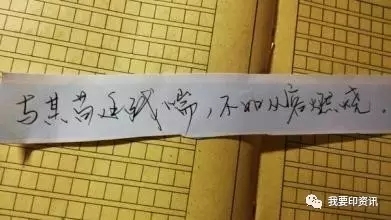 与其苟延残喘，不如从容燃烧.
我要印资讯